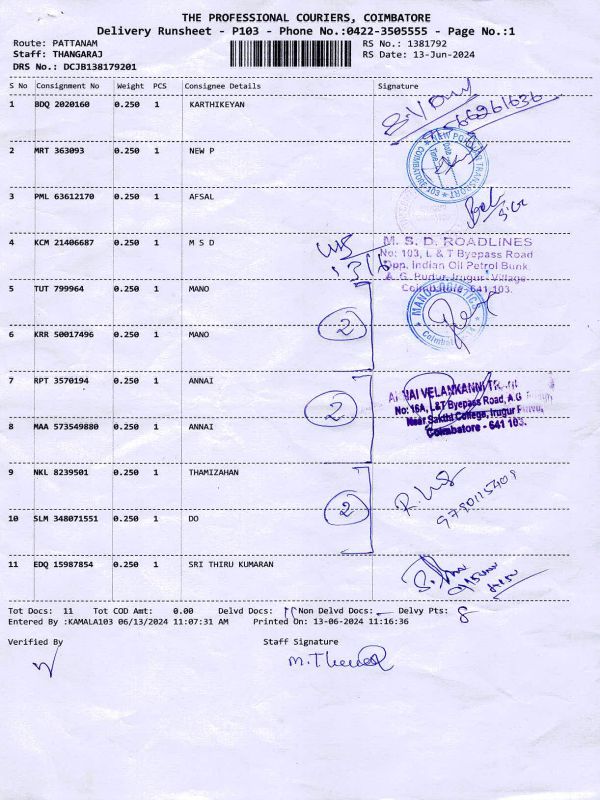 THE PROFESSIONAL COURIERS, COIMBATORE
Delivery Runsheet - P103 - Phone No.:0422-3505555 - Page No.:1
Route: PATTANAM RS No.: 1381792
Staff: THANGARAJ RS Date: 13-Jun-2024
DRS No.: DCJB138179201
S No Consignment No Weight PCS Consignee Details Signature
1 BDQ 2020160 0.250 1 KARTHIKEYAN
2 MRT 363093 0.250 1 NEW P
3 PML 63612170 0.250 1 AFSAL
4 KCM 21406687 0.250 1 M S D
M. S. D. ROADLINES
No: 103, L & T Byepass Road
Opp. Indian Oil Petrol Bunk
A. G. Pudur, Irugur Village
Coimbatore - 641 103.
5 TUT 799964 0.250 1 MANO
2
6 KRR 50017496 0.250 1 MANO
7 RPT 3570194 0.250 1 ANNAI
2
ANNAI VELANKANNI
No: 16A, L&T Byepass Road, A.G.
Near Sakthi College, Irugur
Coimbatore - 641 103.
8 MAA 573549880 0.250 1 ANNAI
9 NKL 8239501 0.250 1 THAMIZAHAN
2
10 SLM 348071551 0.250 1 DO
11 EDQ 15987854 0.250 1 SRI THIRU KUMARAN
Tot Docs: 11 Tot COD Amt: 0.00 Delvd Docs: 11 Non Delvd Docs: - Delvy Pts: 8
Entered By :KAMALA103 06/13/2024 11:07:31 AM Printed On: 13-06-2024 11:16:36
Verified By Staff Signature